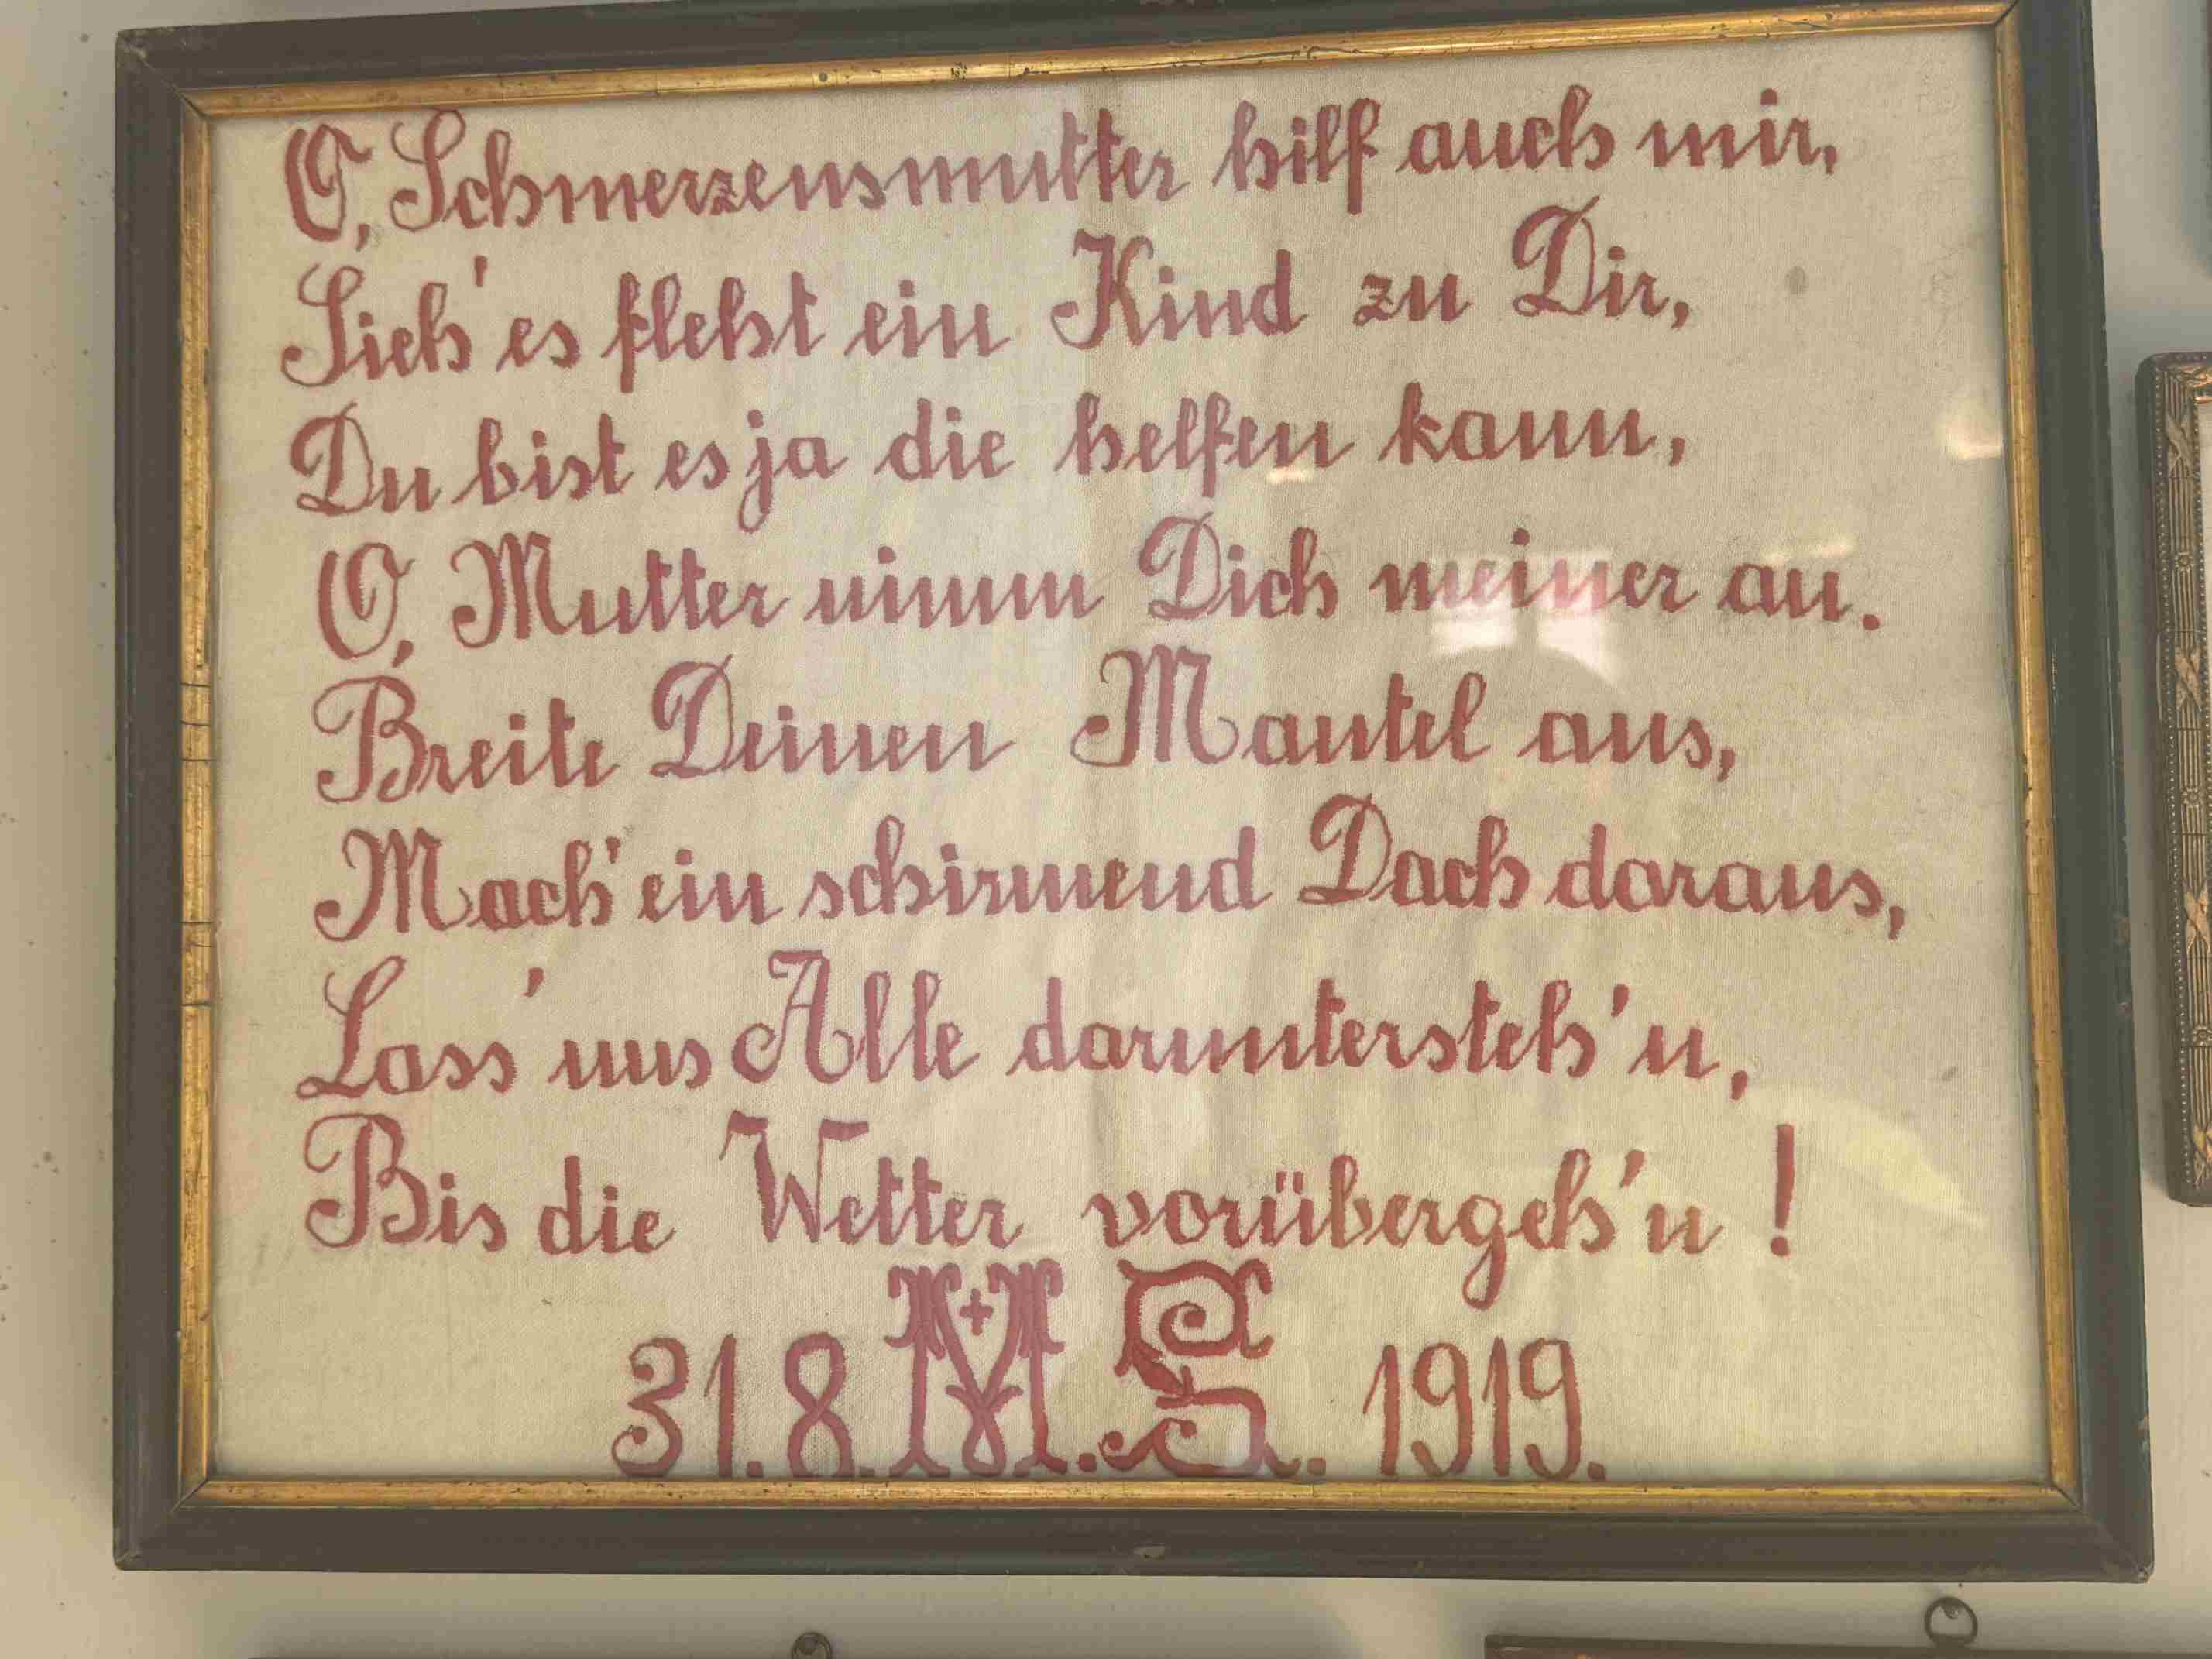 O, Schmerzensmutter hilf auch mir,
Sieh' es fleht ein Kind zu Dir,
Du bist es ja die helfen kann,
O, Mutter nimm Dich meiner an.
Breite Deinen Mantel aus,
Mach' ein schirmend Dach daraus,
Lass' uns Alle daruntersteh'n,
Bis die Wetter vorübergeh'n!
31.8. M. S. 1919.